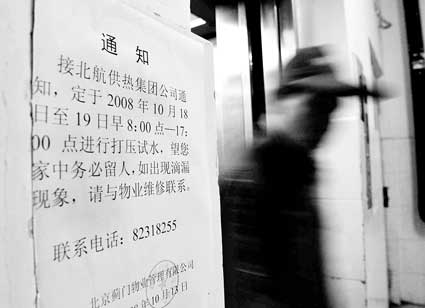 通 知
接北航供热集团公司通
知，定于 2008 年 10 月 18
日至 19 日早 8:00 点—17:
00 点进行打压试水，望您
家中务必留人，如出现滴漏
现象，请与物业维修联系。
联系电话：82318255
北京蓟门物业管理有限公司
10 月 13 日